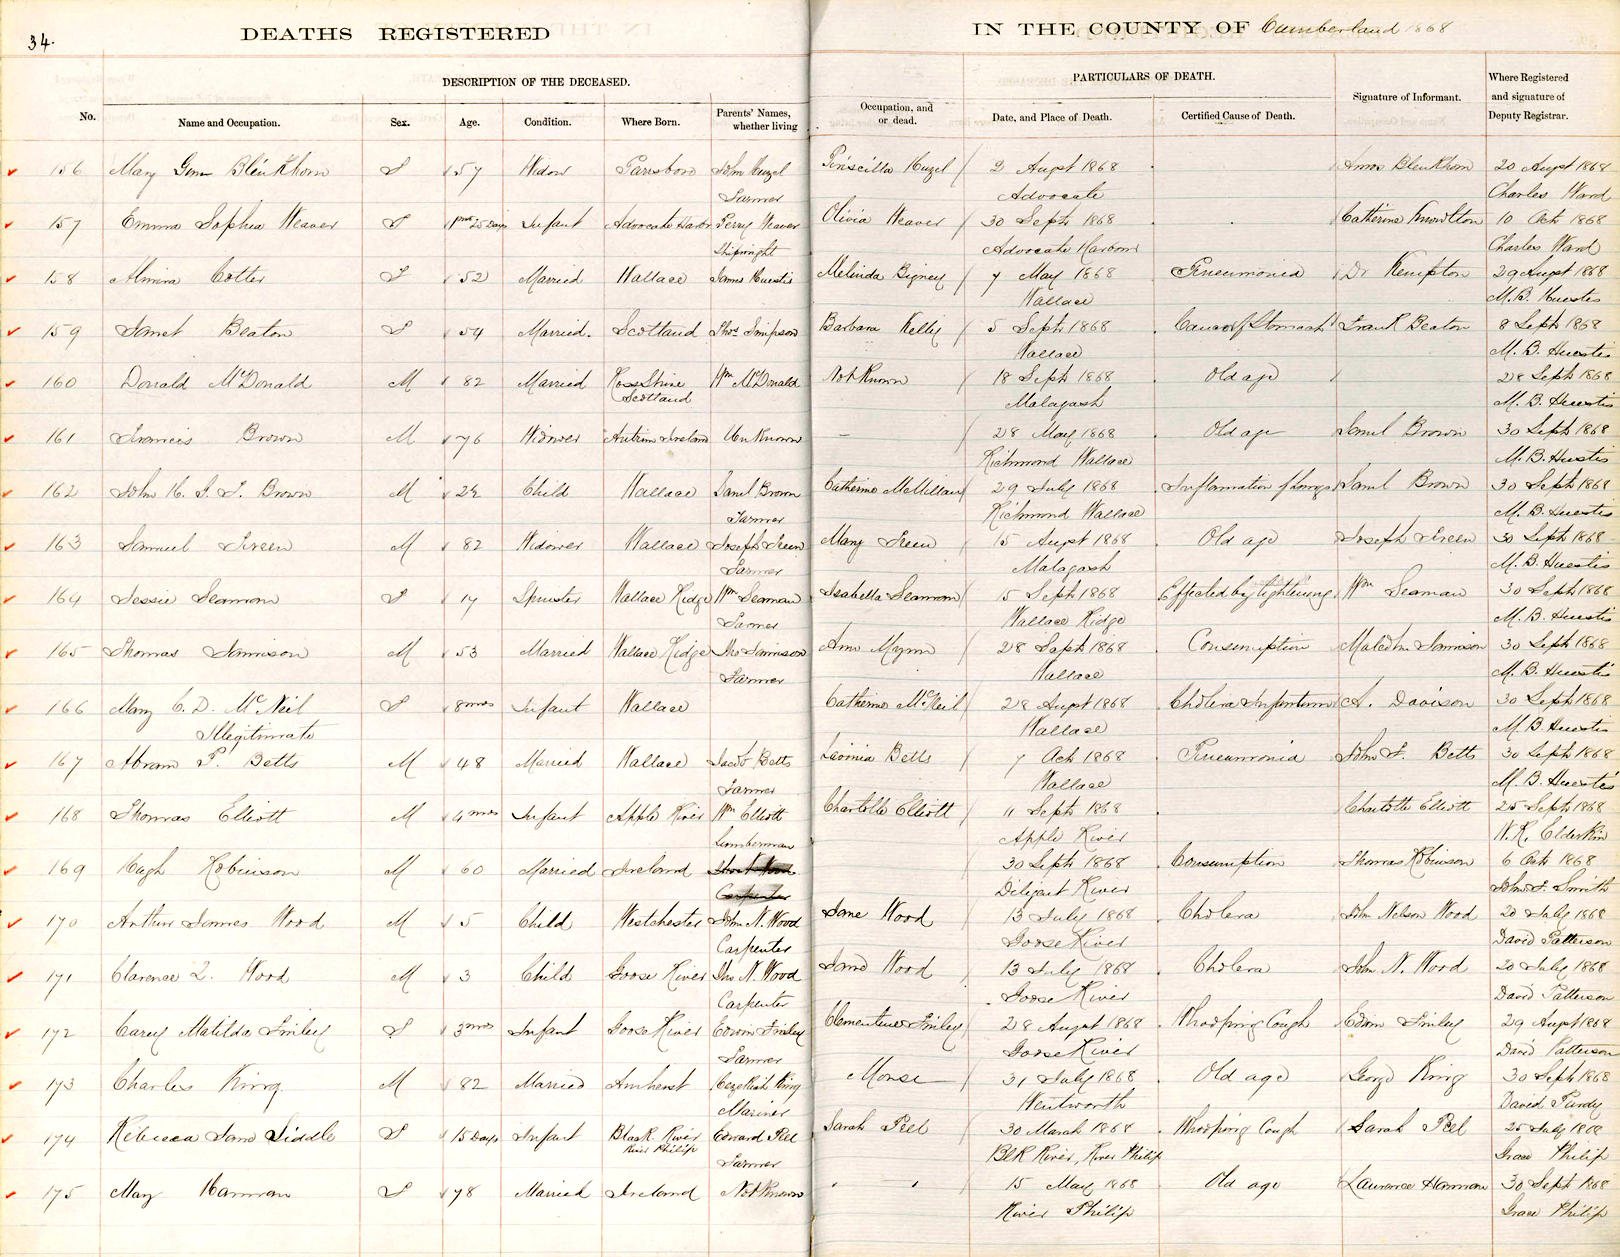 34.
DEATHS REGISTERED
IN THE COUNTY OF Cumberland 1868
DESCRIPTION OF THE DECEASED.
PARTICULARS OF DEATH.
No.
Name and Occupation.
Sex.
Age.
Condition.
Where Born.
Parents' Names,
whether living
Occupation, and
or dead.
Date, and Place of Death.
Certified Cause of Death.
Signature of Informant.
Where Registered
and signature of
Deputy Registrar.
156 Mary Blenkhorn F 57 Widow Parrsboro John Huzel Priscilla Huzel 2 Augst 1868 Amos Blenkhorn 20 Augst 1868
Farmer Advocate Charles Ward
157 Emma Sophia Weaver F 25 Days Infant Advocate Harbor Perry Weaver Olivia Weaver 30 Sept 1868 Catherine Knowlton 10 Oct 1868
Shipwright Advocate Harbour Charles Ward
158 Almira Cotter F 52 Married Wallace James Huestis Melinda Bigney 7 May 1868 Pneumonia Dr Kempton 29 Augst 1868
Wallace M. B. Huestis
159 Janet Beaton F 54 Married. Scotland Thos Simpson Barbara Kelly 5 Sept 1868 Cancer of Stomach Frank Beaton 8 Sept 1868
Wallace M. B. Huestis
160 Donald McDonald M 82 Married Ross Shire Wm McDonald Not Known 18 Sept 1868 Old age 28 Sept 1868
Scotland Malagash M. B. Huestis
161 Francis Brown M 76 Widower Antrim Ireland Unknown — 28 May 1868 Old age Saml Brown 30 Sept 1868
Richmond Wallace M. B. Huestis
162 John H. Brown M 2½ Child Wallace Saml Brown Catherine McMillan 29 July 1868 Inflamation of Lungs Saml Brown 30 Sept 1868
Farmer Richmond Wallace M. B. Huestis
163 Samuel Treen M 82 Widower Wallace Joseph Treen Mary Treen 15 Augst 1868 Old age Joseph Treen 30 Sept 1868
Farmer Malagash M. B. Huestis
164 Jessie Seaman F 17 Spinster Wallace Ridge Wm Seaman Isabella Seaman 5 Sept 1868 Effected by lightening Wm Seaman 30 Sept 1868
Farmer Wallace Ridge M. B. Huestis
165 Thomas Jamison M 53 Married Wallace Ridge Jno Jamison Ann 28 Sept 1868 Consumption Malcolm Jamison 30 Sept 1868
Farmer Wallace M. B. Huestis
166 Mary C. D. McNeil F 8 mos Infant Wallace Catherine McNeil 28 Augst 1868 Cholera Infantum A. Davison 30 Sept 1868
Illegitimate Wallace M. B. Huestis
167 Abram P. Betts M 48 Married Wallace Jacob Betts Lavinia Betts 7 Oct 1868 Pneumonia John F. Betts 30 Sept 1868
Farmer Wallace M. B. Huestis
168 Thomas Elliott M 4 mos Infant Apple River Wm Elliott Charlotte Elliott 11 Sept 1868 Charlotte Elliott 25 Sept 1868
Lumberman Apple River N. R. Elderkin
169 Hugh Robinson M 60 Married Ireland 30 Sept 1868 Consumption Thomas Robinson 6 Oct 1868
Carpenter Diligent River John F. Smith
170 Arthur James Wood M 5 Child Westchester John N. Wood Jane Wood 13 July 1868 Cholera John Nelson Wood 20 July 1868
Carpenter Goose River David Patterson
171 Clarence L. Wood M 3 Child Goose River Jno N. Wood Jane Wood 13 July 1868 Cholera John N. Wood 20 July 1868
Carpenter Goose River David Patterson
172 Carey Matilda Finley F 3 mos Infant Goose River Edwin Finley Clementine Finley 28 Augst 1868 Whooping Cough Edwin Finley 29 Augst 1868
Farmer Goose River David Patterson
173 Charles King M 82 Married Amherst Hezekiah King 31 July 1868 Old age George King 30 Sept 1868
Mariner Wentworth David Purdy
174 Rebecca Jane Siddle F 15 Days Infant Black River Edward Peel Sarah Peel 30 March 1868 Whooping Cough Sarah Peel 25 July 1868
River Philip Farmer Blk River, River Philip Grace Philip
175 Mary Hannan F 78 Married Ireland Not Known 15 May 1868 Old age Laurence Hannan 30 Sept 1868
River Philip Grace Philip